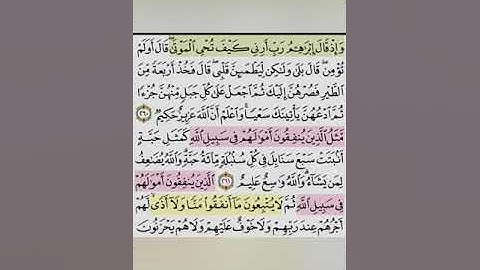 وَإِذْ قَالَ إِبْرَٰهِـۧمُ رَبِّ أَرِنِى كَيْفَ تُحْىِ ٱلْمَوْتَىٰ قَالَ أَوَلَمْ
تُؤْمِن قَالَ بَلَىٰ وَلَـٰكِن لِّيَطْمَئِنَّ قَلْبِى قَالَ فَخُذْ أَرْبَعَةً مِّنَ
ٱلطَّيْرِ فَصُرْهُنَّ إِلَيْكَ ثُمَّ ٱجْعَلْ عَلَىٰ كُلِّ جَبَلٍ مِّنْهُنَّ جُزْءًا
ثُمَّ ٱدْعُهُنَّ يَأْتِينَكَ سَعْيًا وَٱعْلَمْ أَنَّ ٱللَّهَ عَزِيزٌ حَكِيمٌ ٢٦٠
مَّثَلُ ٱلَّذِينَ يُنفِقُونَ أَمْوَٰلَهُمْ فِى سَبِيلِ ٱللَّهِ كَمَثَلِ حَبَّةٍ
أَنۢبَتَتْ سَبْعَ سَنَابِلَ فِى كُلِّ سُنۢبُلَةٍ مِّا۟ئَةُ حَبَّةٍ وَٱللَّهُ يُضَـٰعِفُ
لِمَن يَشَآءُ وَٱللَّهُ وَٰسِعٌ عَلِيمٌ ٢٦١ ٱلَّذِينَ يُنفِقُونَ أَمْوَٰلَهُمْ
فِى سَبِيلِ ٱللَّهِ ثُمَّ لَا يُتْبِعُونَ مَآ أَنفَقُوا۟ مَنًّا وَلَآ أَذًى لَّهُمْ
أَجْرُهُمْ عِندَ رَبِّهِمْ وَلَا خَوْفٌ عَلَيْهِمْ وَلَا هُمْ يَحْزَنُونَ